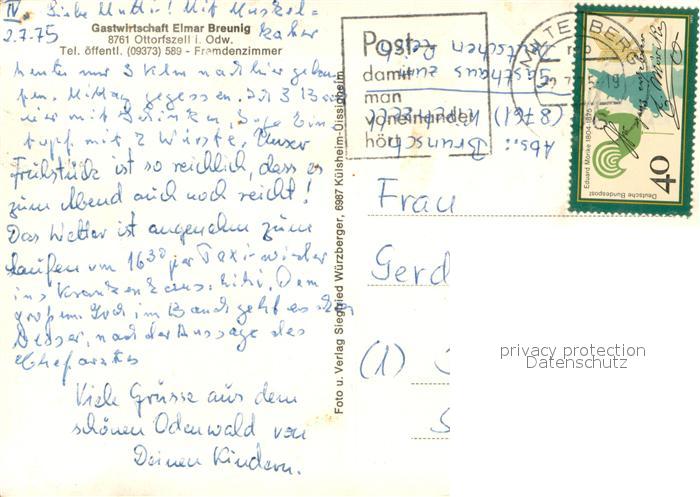 IV. Liebe Mutti! Mit Muskel=
2.7.75 kater
Gastwirtschaft Elmar Breunig
8761 Ottorfszell i. Odw.
Tel. öffentl. (09373) 589 - Fremdenzimmer
heute nur 3 klm nach hier gelau-
fen. Mittag gegessen. 2 Bau
mit Schinken,
topf mit 2 Würste. Unser
Frühstück ist so reichlich, dass es
zum Abend auch noch reicht!
Das Wetter ist angenehm zum
laufen um 16³⁰ per Taxi wieder
ins Krankenhaus. Dem
großen Loch im Bauch geht es
besser, nach der Aussage des
Chefarztes
Viele Grüsse aus dem
schönen Odenwald von
Deinen Kindern.
Foto u. Verlag Siegfried Würzberger, 6987 Külsheim-Uissigheim
Post-
damit
man
voneinander
hört
MILTENBERG
Abs.: Brunsch
(8761)
Gasthaus zum
Deutschen
Eduard Mörike 1804-1875
Deutsche Bundespost
40
Frau
Gerd
(1)
privacy protection
Datenschutz